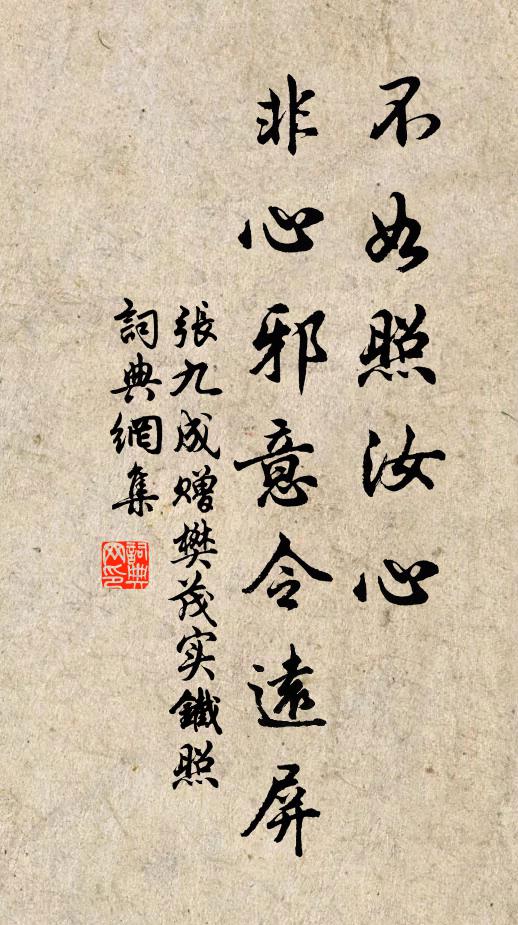 不如照汝心
非心邪意令遠屏
張九成贈樊茂实鐵照
詞典網集
詞典网印